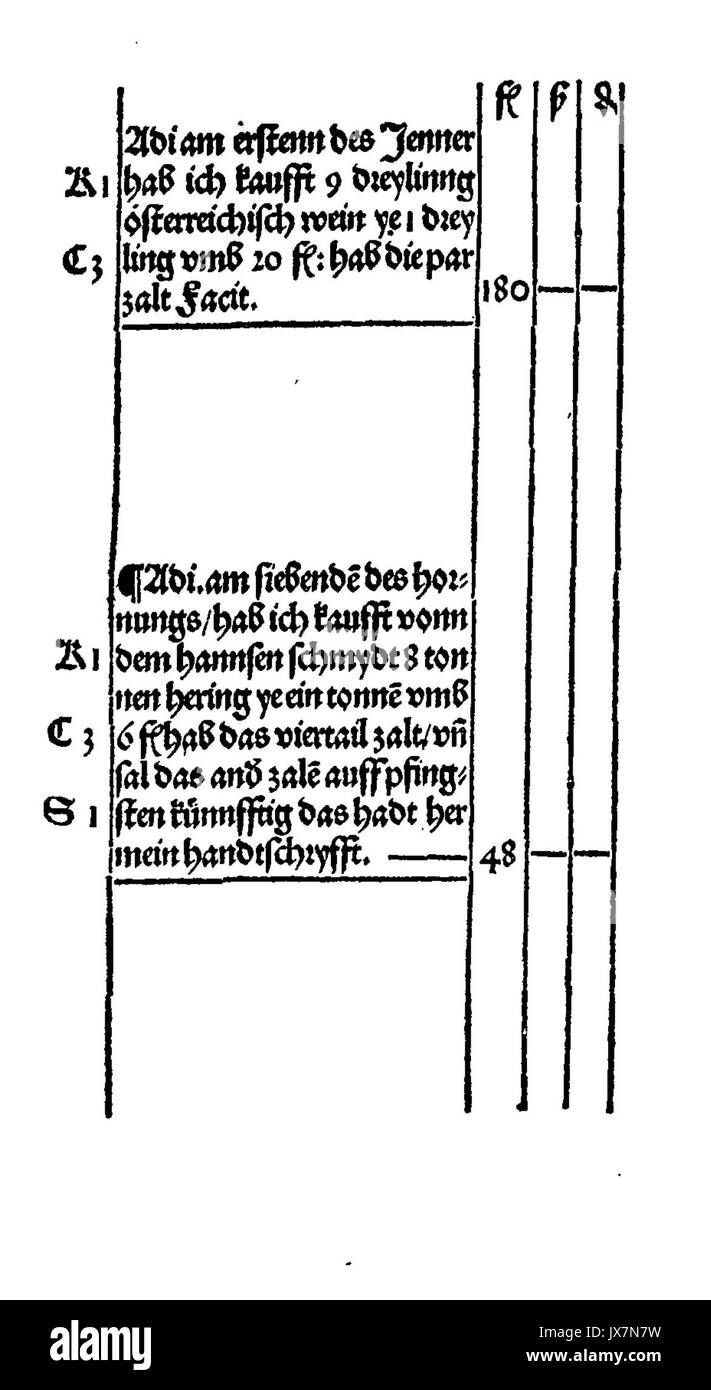 fl ß ₰
Adi am erſtenn des Jenner
K 1 hab ich kaufft 9 dreylinng
öſterreichiſch wein ye 1 drey
C 3 ling vmb 20 fl: hab die par
zalt Facit. 180 — —
¶Adi. am ſiebendē des hor⸗
nungs/hab ich kaufft vonn
K 1 dem hannſen ſchmydt 8 ton
nen hering ye ein tonnē vmb
C 3 6 fl hab das viertail zalt/ vn̄
ſal das and̄ zalē auff pfing⸗
S 1 ſten künnfftig das hadt her
mein handtſchryfft. — 48 — —
alamy
Image ID: JX7N7W
www.alamy.com